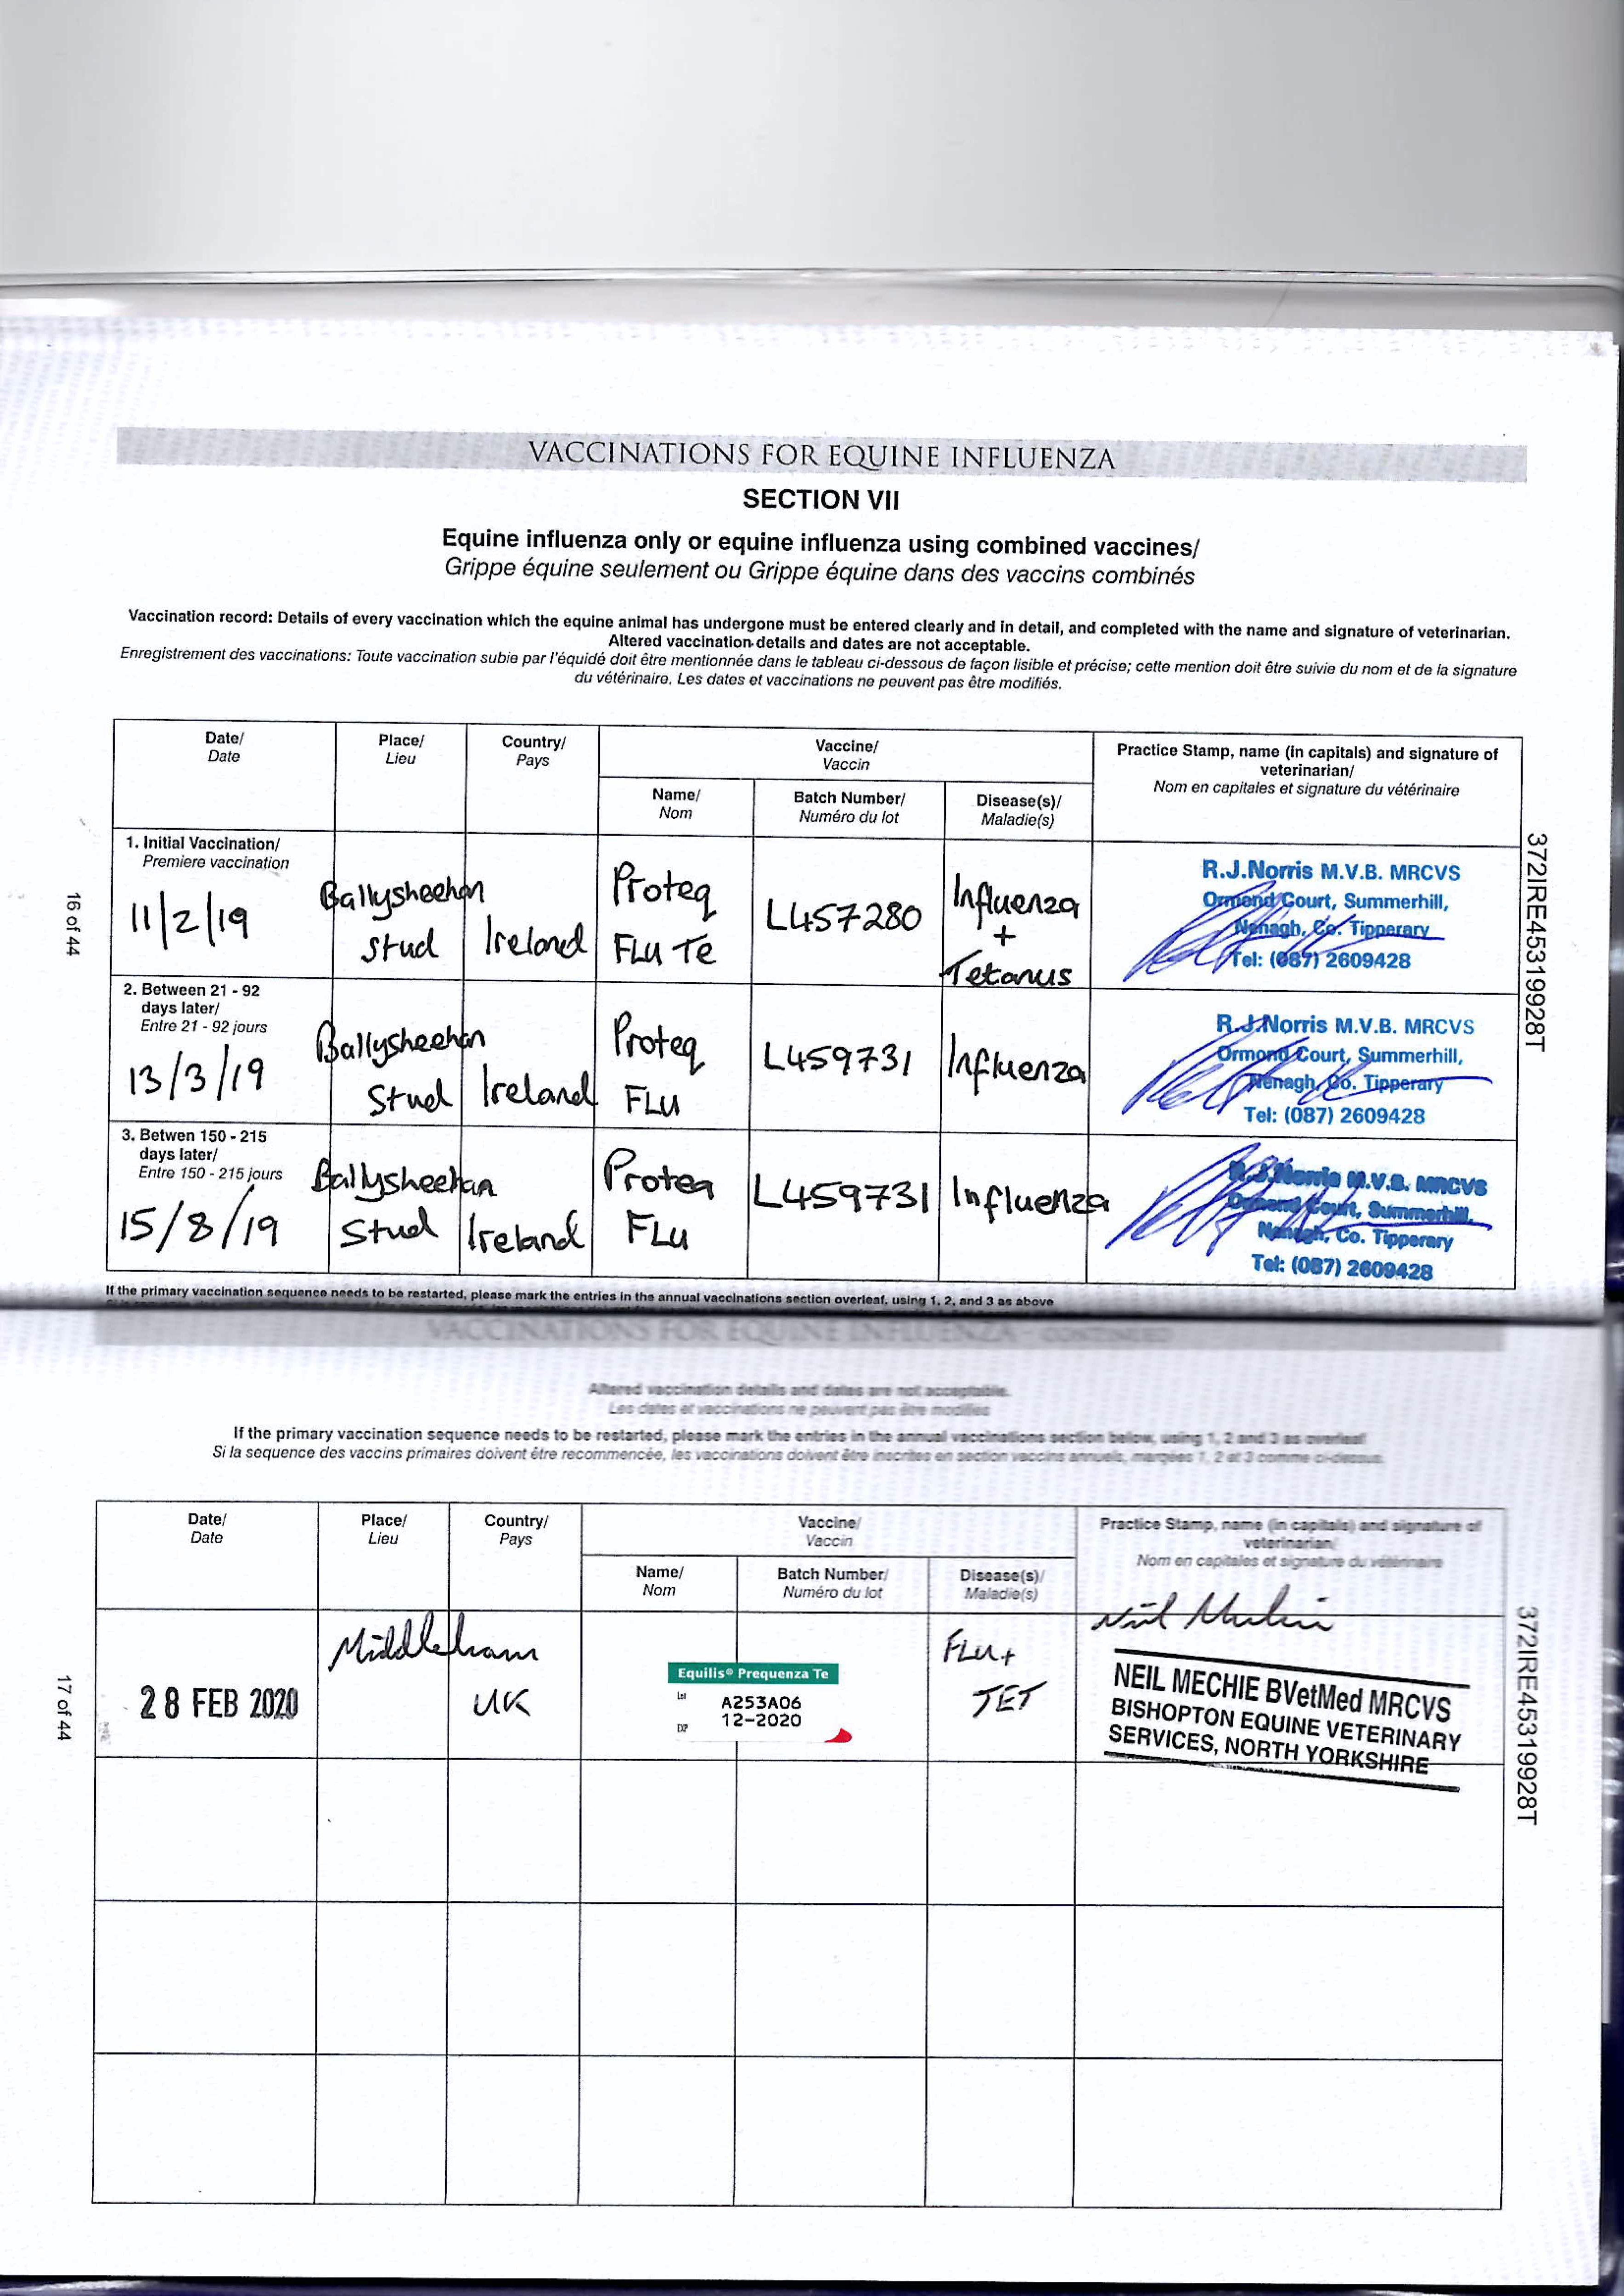 VACCINATIONS FOR EQUINE INFLUENZA
SECTION VII
Equine influenza only or equine influenza using combined vaccines/
Grippe équine seulement ou Grippe équine dans des vaccins combinés
Vaccination record: Details of every vaccination which the equine animal has undergone must be entered clearly and in detail, and completed with the name and signature of veterinarian.
Altered vaccination details and dates are not acceptable.
Enregistrement des vaccinations: Toute vaccination subie par l'équidé doit être mentionnée dans le tableau ci-dessous de façon lisible et précise; cette mention doit être suivie du nom et de la signature
du vétérinaire. Les dates et vaccinations ne peuvent pas être modifiés.
Date/
Date
Place/
Lieu
Country/
Pays
Vaccine/
Vaccin
Name/
Nom
Batch Number/
Numéro du lot
Disease(s)/
Maladie(s)
Practice Stamp, name (in capitals) and signature of
veterinarian/
Nom en capitales et signature du vétérinaire
1. Initial Vaccination/
Premiere vaccination
11/2/19
Ballysheehan
Stud
Ireland
Proteq
FLU Te
L457280
Influenza
+
Tetanus
R.J.Norris M.V.B. MRCVS
Ormond Court, Summerhill,
Nenagh, Co. Tipperary
Tel: (087) 2609428
2. Between 21 - 92
days later/
Entre 21 - 92 jours
13/3/19
Ballysheehan
Stud
Ireland
Proteq
FLU
L459731
Influenza
R.J.Norris M.V.B. MRCVS
Ormond Court, Summerhill,
Nenagh, Co. Tipperary
Tel: (087) 2609428
3. Betwen 150 - 215
days later/
Entre 150 - 215 jours
15/8/19
Ballysheehan
Stud
Ireland
Proteq
FLU
L459731
Influenza
R.J.Norris M.V.B. MRCVS
Ormond Court, Summerhill,
Nenagh, Co. Tipperary
Tel: (087) 2609428
If the primary vaccination sequence needs to be restarted, please mark the entries in the annual vaccinations section overleaf, using 1, 2, and 3 as above
16 of 44
372IRE45319928T
VACCINATIONS FOR EQUINE INFLUENZA - CONTINUED
Altered vaccination details and dates are not acceptable.
Les dates et vaccinations ne peuvent pas être modifiés
If the primary vaccination sequence needs to be restarted, please mark the entries in the annual vaccinations section below, using 1, 2 and 3 as overleaf
Si la sequence des vaccins primaires doivent être recommencée, les vaccinations doivent être inscrites en section vaccins annuels, marqées 1, 2 et 3 comme ci-dessus.
Date/
Date
Place/
Lieu
Country/
Pays
Vaccine/
Vaccin
Name/
Nom
Batch Number/
Numéro du lot
Disease(s)/
Maladie(s)
Practice Stamp, name (in capitals) and signature of
veterinarian/
Nom en capitales et signature du vétérinaire
28 FEB 2020
Middleham
UK
Equilis® Prequenza Te
Lot A253A06
EXP 12-2020
FLU +
TET
Neil Mechie
NEIL MECHIE BVetMed MRCVS
BISHOPTON EQUINE VETERINARY
SERVICES, NORTH YORKSHIRE
17 of 44
372IRE45319928T